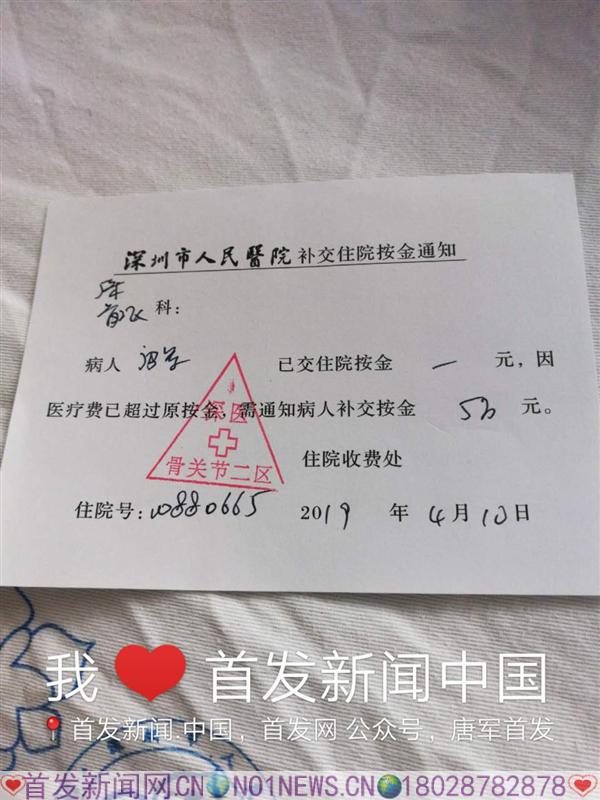 深圳市人民醫院补交住院按金通知
科：
病人 已交住院按金 一 元，因
医疗费已超过原按金，需通知病人补交按金 5万 元。
深医
骨关节二区
住院收费处
住院号：00880665 2019 年 4月10日
我❤️首发新闻中国
首发新闻.中国，首发网 公众号，唐军首发
首发新闻网.CN NO1NEWS.CN 18028782878